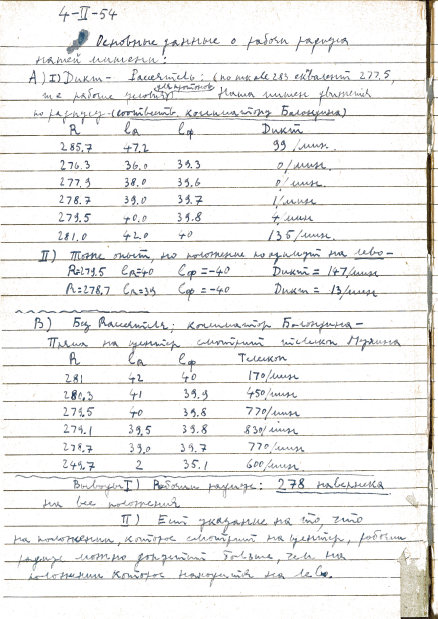 4-II-54
Основные данные о работе радиуса
нашей мишени:
A) I) Дикт- Рассеятель: (по шкале 283 эквивалент 277,5,
те же рабочие условия) Наша мишен движется
по радиусу (соответств. коллиматору Балонкина)
R la lф Дикт
285.7 47.2 99/мин.
276.3 36.0 39.3 0/мин.
277.9 38.0 39.6 0/мин.
278.7 39.0 39.7 1/мин
279.5 40.0 39.8 4/мин
281.0 42.0 40 135/мин.
II) Тоже опыт, но положение на лево-
R=279.5 la=40 lф=-40 Дикт = 147/мин
R=278,7 la=39 lф=-40 Дикт = 13/мин
B) Без Рассеятеля; коллиматор Балонкина-
Прямо на центр смотрит телескоп
R la lф Телескоп
281 42 40 170/мин
280,3 41 39.9 450/мин
279,5 40 39.8 770/мин
279.1 39,5 39.8 830/мин
278,7 39.0 39.7 770/мин
249.7 2 35.1 600/мин
Выводы I) Рабочий радиус: 278 наверняка
на все положения
II) Есть указание на то, что
на положении, которое смотрит на центр, рабочий
радиус можно допустить больше, чем на
положении которое находится на лево.